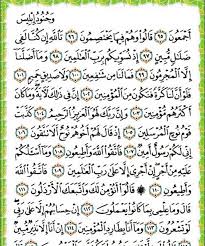 وَجُنُودُ إِبْلِيسَ
أَجْمَعُونَ ٩٥ قَالُوا۟ وَهُمْ فِيهَا يَخْتَصِمُونَ ٩٦ تَٱللَّهِ إِن كُنَّا لَفِى
ضَلَٰلٍ مُّبِينٍ ٩٧ إِذْ نُسَوِّيكُم بِرَبِّ ٱلْعَٰلَمِينَ ٩٨ وَمَآ أَضَلَّنَآ
إِلَّا ٱلْمُجْرِمُونَ ٩٩ فَمَا لَنَا مِن شَٰفِعِينَ ١٠٠ وَلَا صَدِيقٍ حَمِيمٍ ١٠١
فَلَوْ أَنَّ لَنَا كَرَّةً فَنَكُونَ مِنَ ٱلْمُؤْمِنِينَ ١٠٢ إِنَّ فِى ذَٰلِكَ لَءَايَةً وَمَا كَانَ
أَكْثَرُهُم مُّؤْمِنِينَ ١٠٣ وَإِنَّ رَبَّكَ لَهُوَ ٱلْعَزِيزُ ٱلرَّحِيمُ ١٠٤ كَذَّبَتْ
قَوْمُ نُوحٍ ٱلْمُرْسَلِينَ ١٠٥ إِذْ قَالَ لَهُمْ أَخُوهُمْ نُوحٌ أَلَا تَتَّقُونَ ١٠٦
إِنِّى لَكُمْ رَسُولٌ أَمِينٌ ١٠٧ فَٱتَّقُوا۟ ٱللَّهَ وَأَطِيعُونِ ١٠٨ وَمَآ أَسْـَٔلُكُمْ
عَلَيْهِ مِنْ أَجْرٍ إِنْ أَجْرِىَ إِلَّا عَلَىٰ رَبِّ ٱلْعَٰلَمِينَ ١٠٩ فَٱتَّقُوا۟ ٱللَّهَ
وَأَطِيعُونِ ١١٠ قَالُوٓا۟ أَنُؤْمِنُ لَكَ وَٱتَّبَعَكَ ٱلْأَرْذَلُونَ ١١١
قَالَ وَمَا عِلْمِى بِمَا كَانُوا۟ يَعْمَلُونَ ١١٢ إِنْ حِسَابُهُمْ إِلَّا عَلَىٰ رَبِّى
لَوْ تَشْعُرُونَ ١١٣ وَمَآ أَنَا۠ بِطَارِدِ ٱلْمُؤْمِنِينَ ١١٤ إِنْ أَنَا۠ إِلَّا